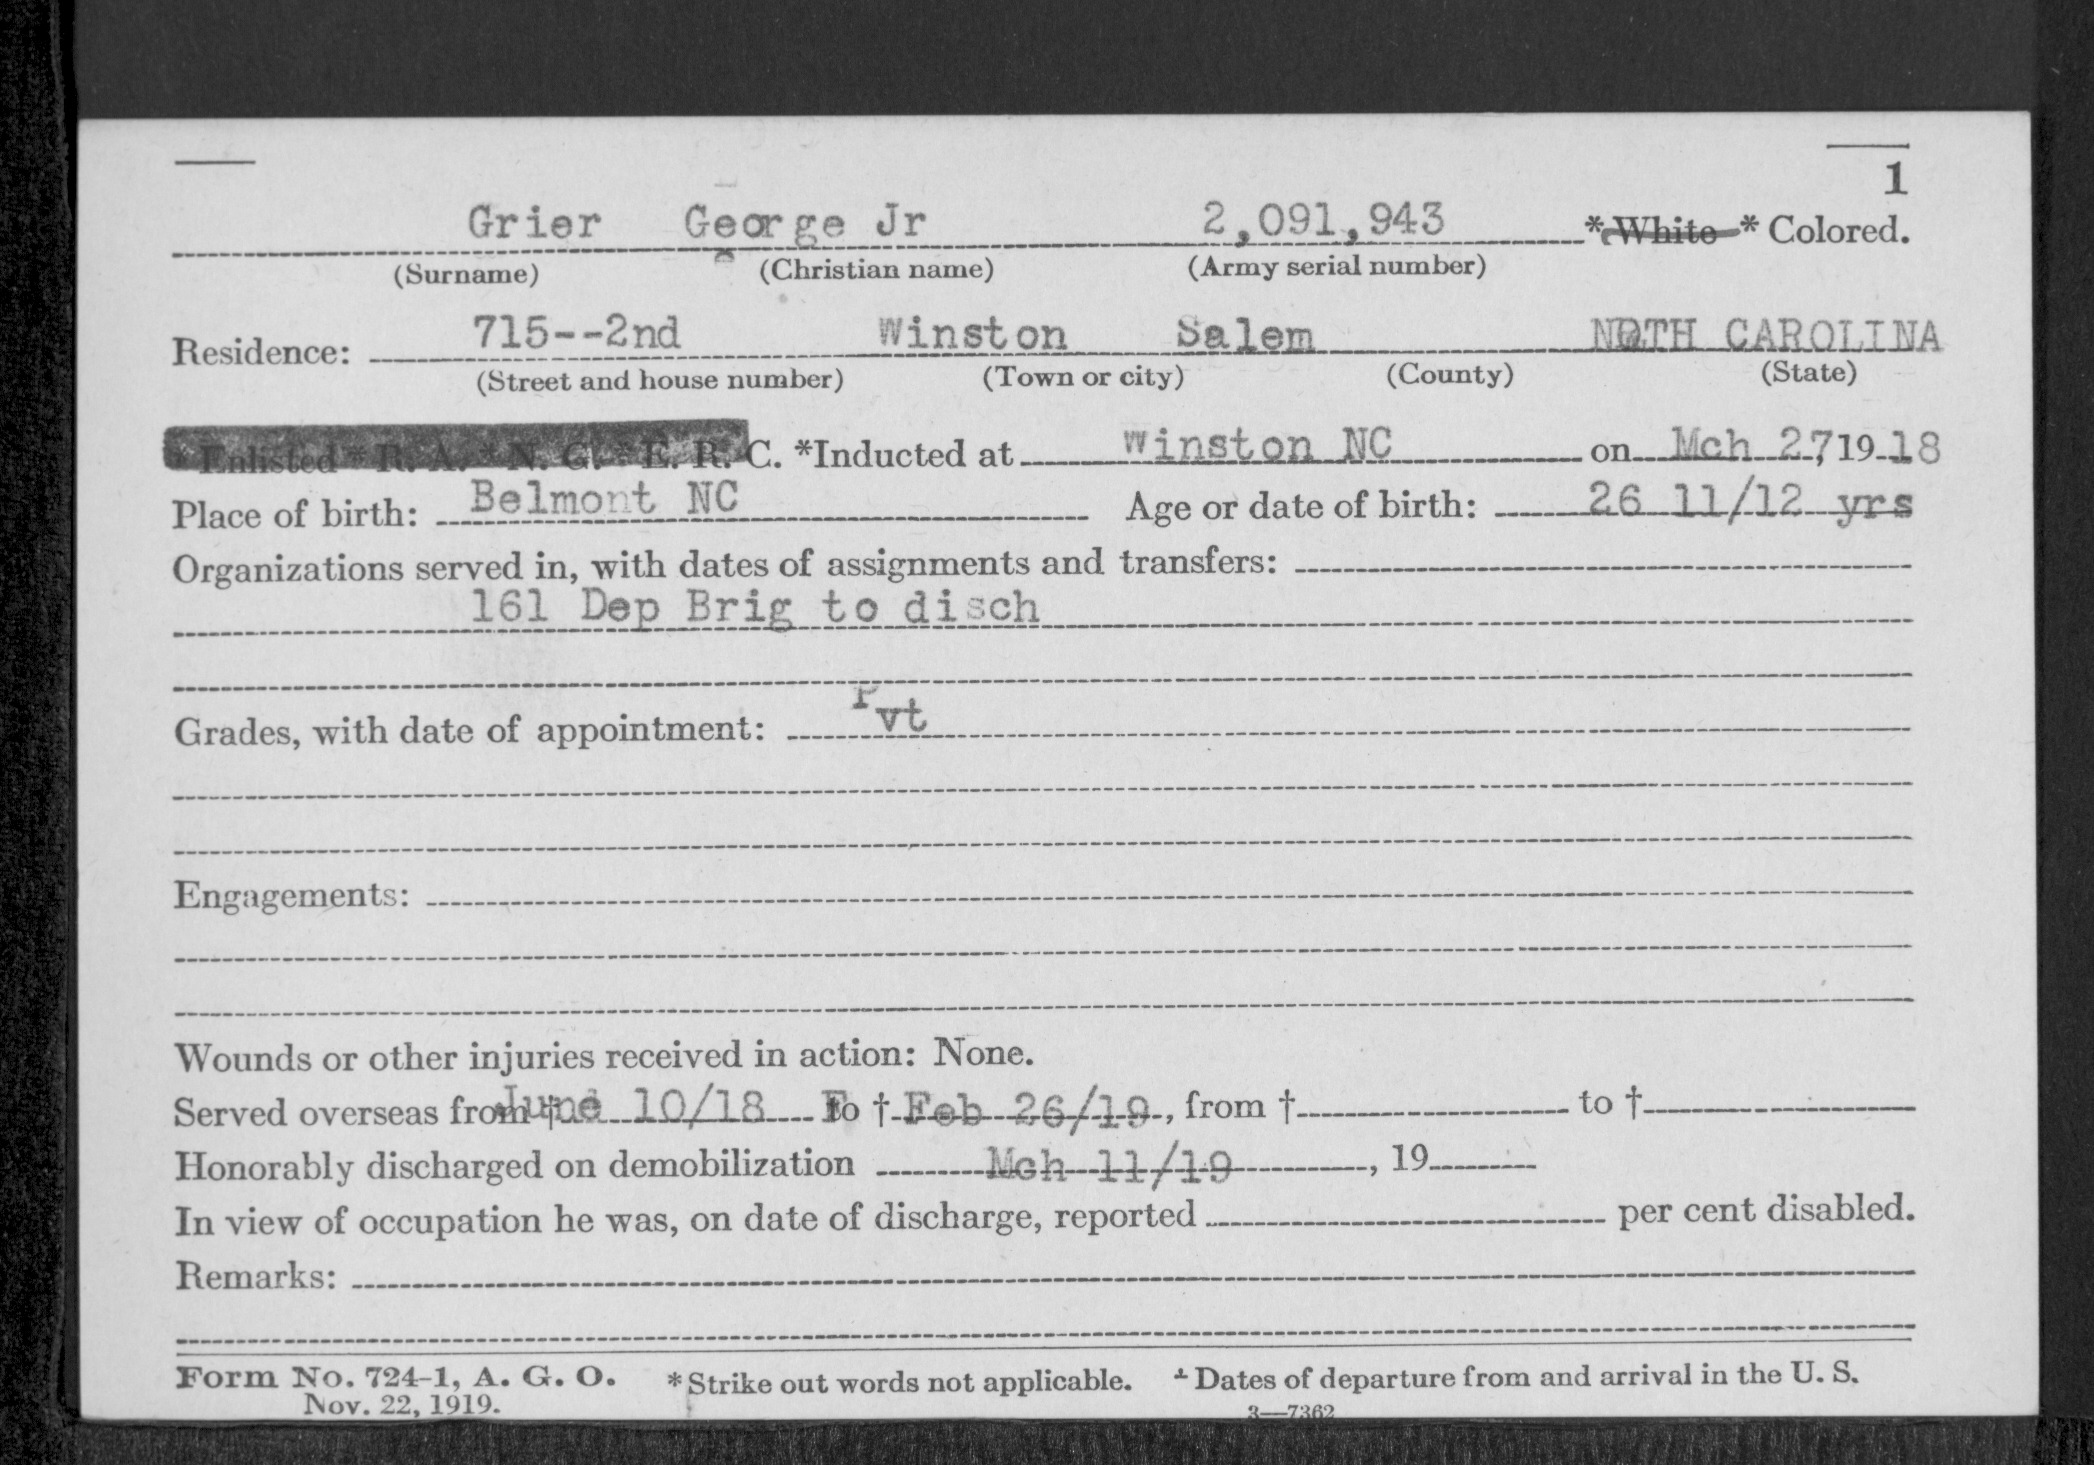 1
Grier George Jr 2,091,943 *White * Colored.
(Surname) (Christian name) (Army serial number)
715--2nd Winston Salem NOTH CAROLINA
Residence:
(Street and house number) (Town or city) (County) (State)
* Enlisted * R. A. * N. G. * E. R. C. *Inducted at Winston NC on Mch 27, 1918
Place of birth: Belmont NC Age or date of birth: 26 11/12 yrs
Organizations served in, with dates of assignments and transfers:
161 Dep Brig to disch
Grades, with date of appointment: Pvt
Engagements:
Wounds or other injuries received in action: None.
Served overseas from † June 10/18 to † Feb 26/19, from † to †
Honorably discharged on demobilization Mch 11/19, 19
In view of occupation he was, on date of discharge, reported per cent disabled.
Remarks:
Form No. 724-1, A. G. O. *Strike out words not applicable. † Dates of departure from and arrival in the U. S.
Nov. 22, 1919. 3—7362